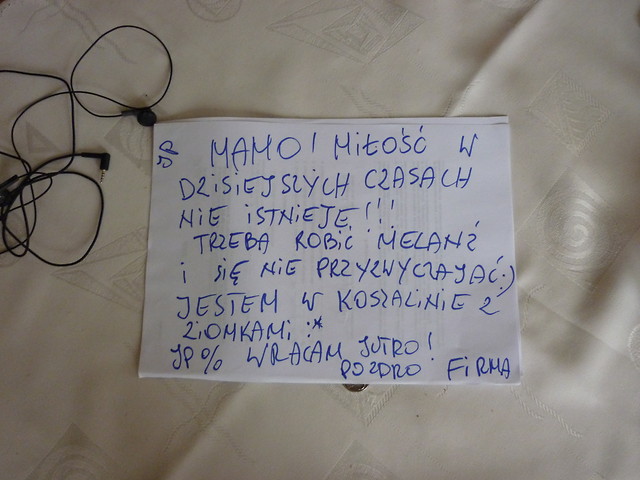 MAMO! MIŁOŚĆ W
DZISIEJSZYCH CZASACH
NIE ISTNIEJĘ!!!
TRZEBA ROBIĆ MELANŻ
i SIĘ NIE PRZYZWYCZAJAĆ:)
JESTEM W KOSZALINIE Z
ZIOMKAMI :*
JP% WRACAM JUTRO!
POZDRO FIRMA